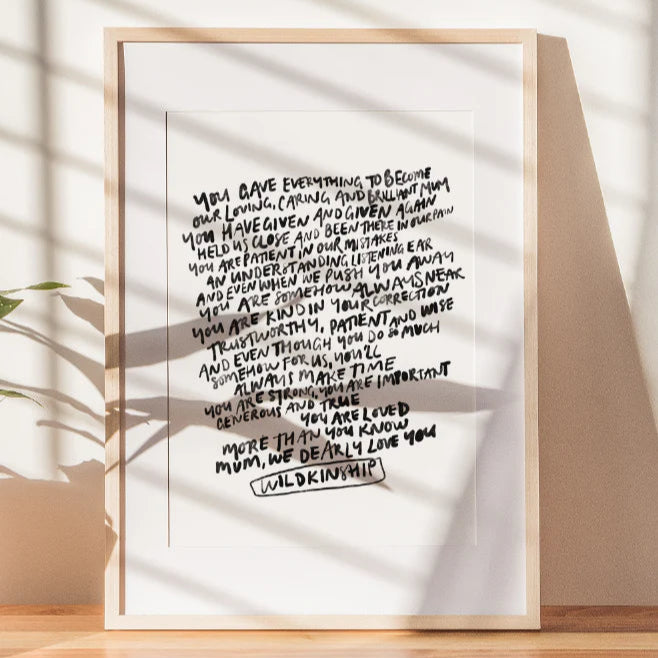 YOU GAVE EVERYTHING TO BECOME
OUR LOVING, CARING AND BRILLIANT MUM
YOU HAVE GIVEN AND GIVEN AGAIN
HELD US CLOSE AND BEEN THERE IN OUR PAIN
YOU ARE PATIENT IN OUR MISTAKES
AN UNDERSTANDING LISTENING EAR
AND EVEN WHEN WE PUSH YOU AWAY
YOU ARE SOMEHOW ALWAYS NEAR
YOU ARE KIND IN YOUR CORRECTION
TRUSTWORTHY, PATIENT AND WISE
AND EVEN THOUGH YOU DO SO MUCH
SOMEHOW FOR US, YOU'LL
ALWAYS MAKE TIME
YOU ARE STRONG, YOU ARE IMPORTANT
GENEROUS AND TRUE
YOU ARE LOVED
MORE THAN YOU KNOW
MUM, WE DEARLY LOVE YOU
WILDKINSHIP